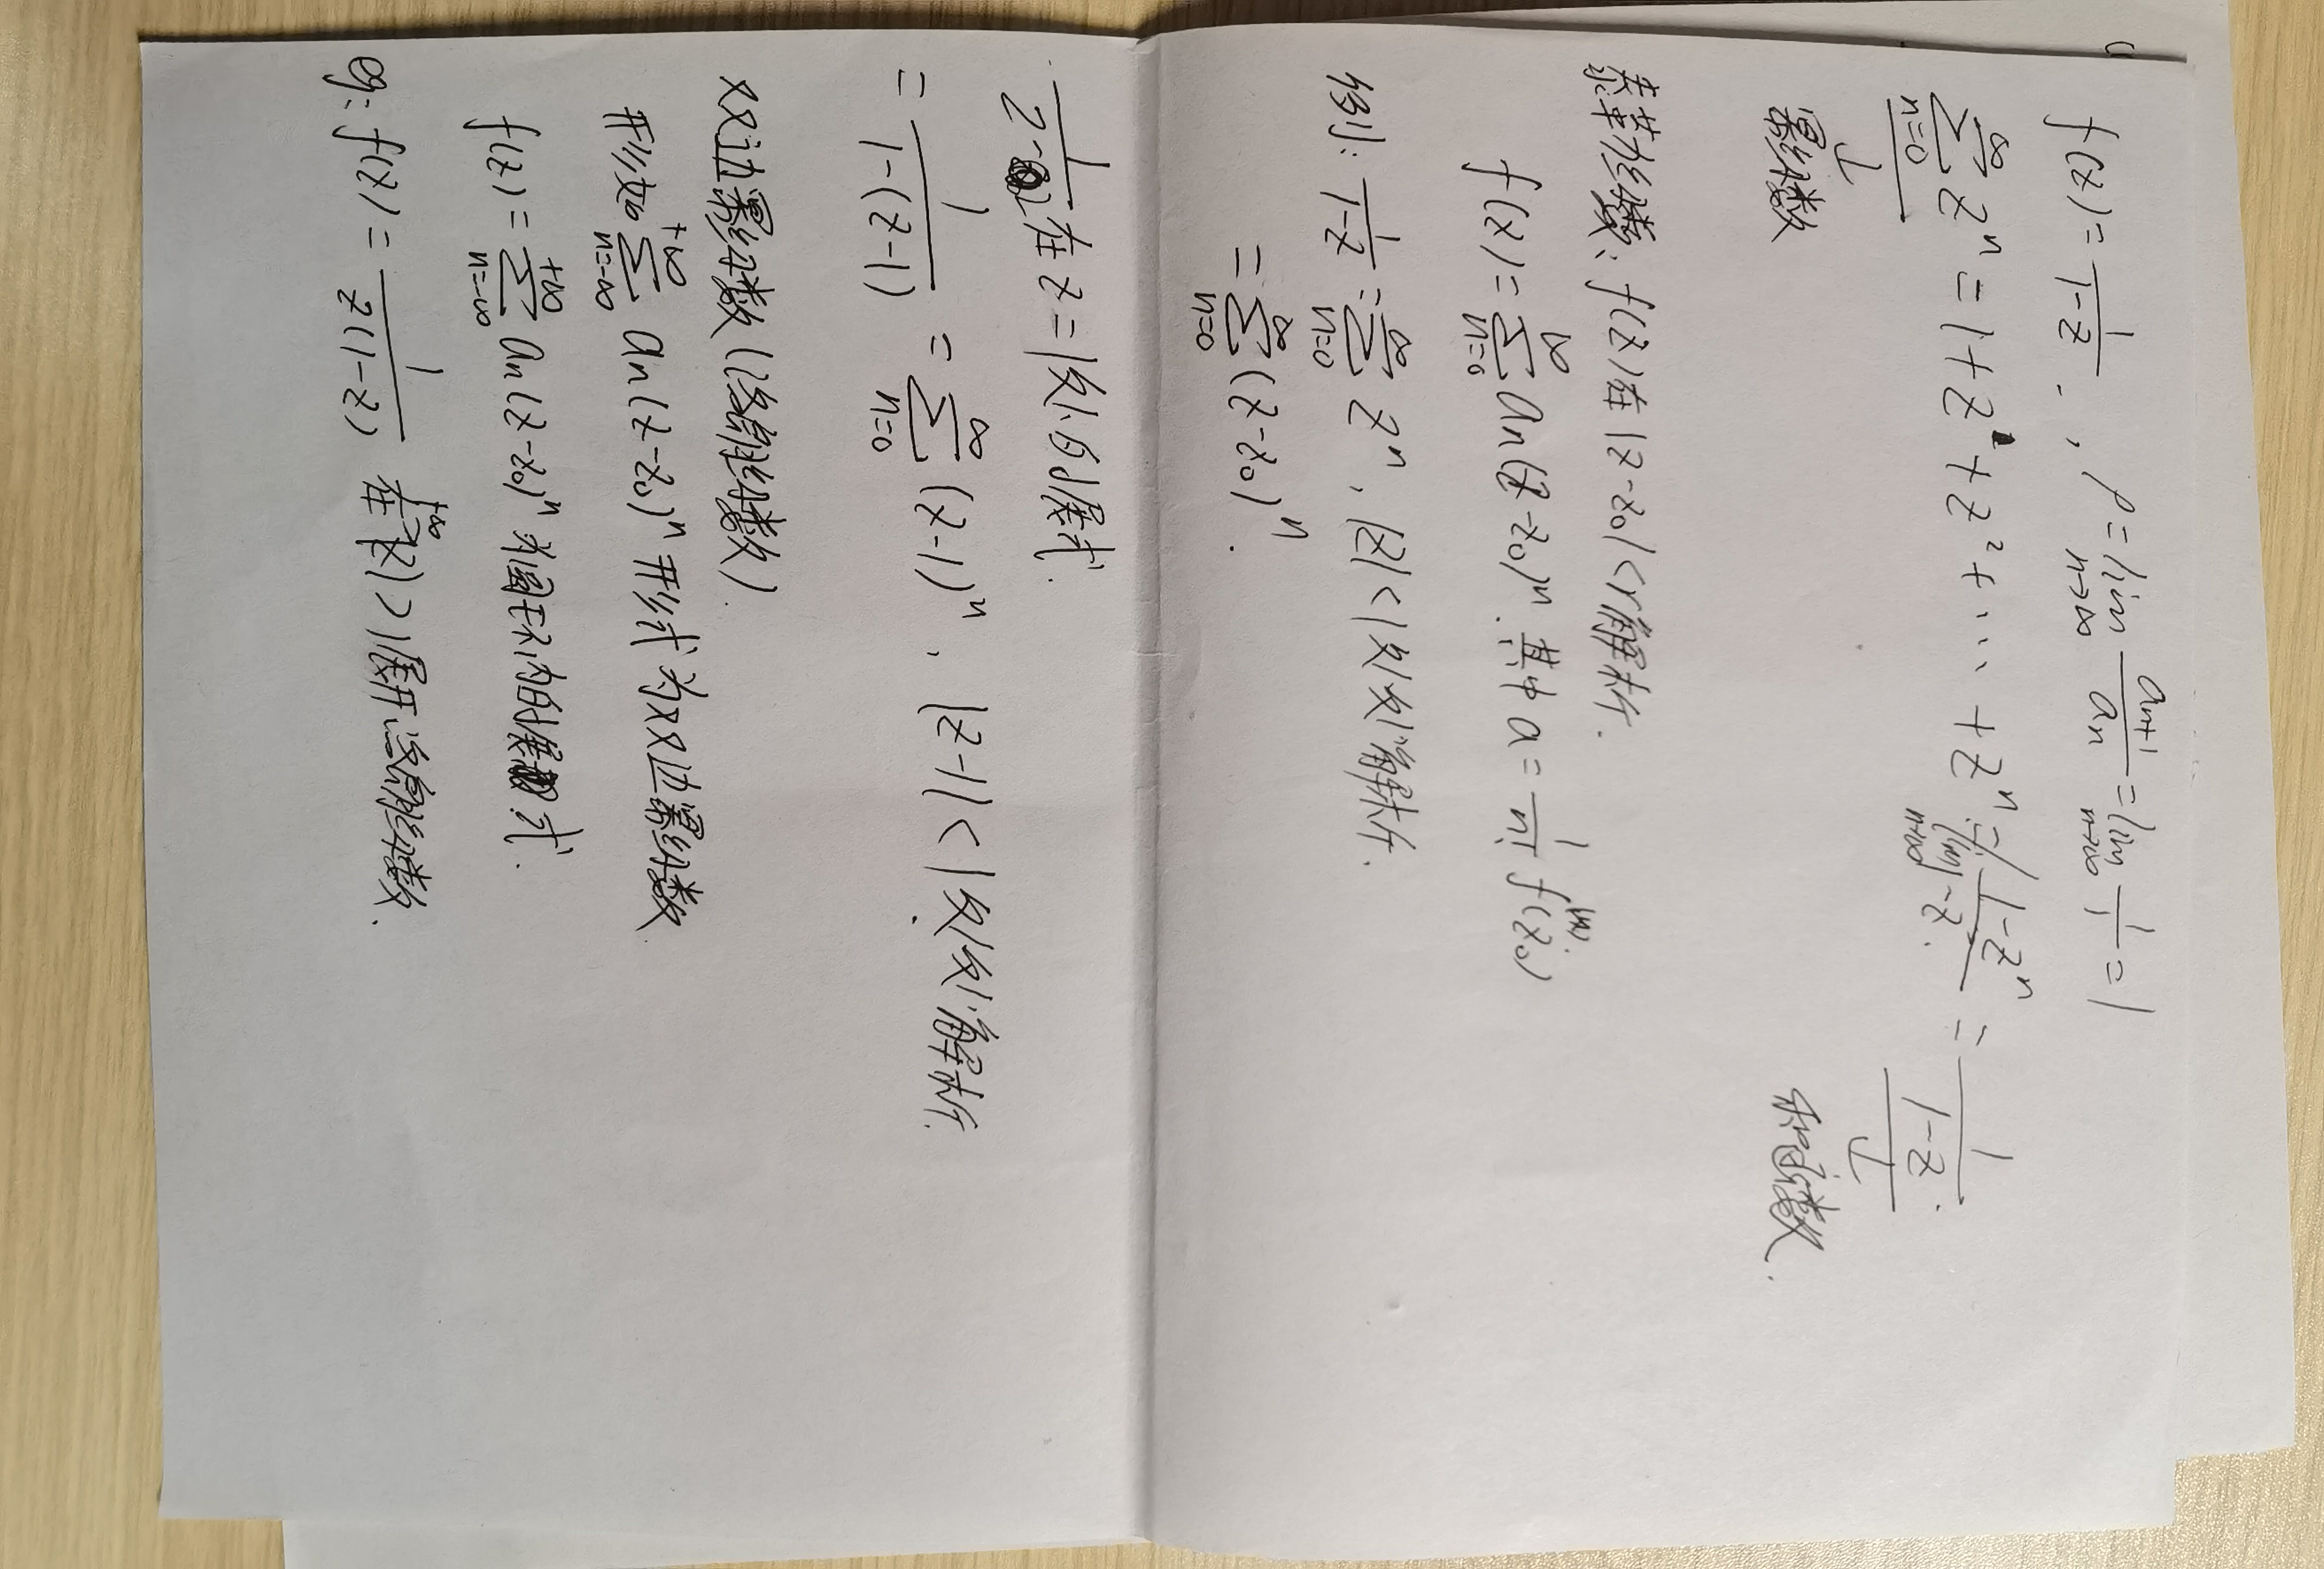 f(z) = 1/(1-z), ρ = lim_{n→∞} a_{n+1}/a_n = lim_{n→∞} 1/1 = 1
∑_{n=0}^{∞} z^n = 1 + z + z^2 + ⋯ + z^n = lim_{n→∞} (1-z^n)/(1-z) = 1/(1-z).
↓ ↓
幂级数 和函数.
泰勒级数: f(z)在|z-z_0|<r解析.
f(z) = ∑_{n=0}^{∞} a_n(z-z_0)^n. 其中 a = 1/n! f^{(n)}(z_0)
例: 1/(1-z) = ∑_{n=0}^{∞} z^n, |z|<1处处解析.
= ∑_{n=0}^{∞} (z-z_0)^n.
1/(2-z) 在z=1处的展式.
= 1/(1-(z-1)) = ∑_{n=0}^{∞} (z-1)^n, |z-1|<1处处解析.
双边幂级数(洛朗级数).
形如 ∑_{n=-∞}^{+∞} a_n(z-z_0)^n 形式为双边幂级数.
f(z) = ∑_{n=-∞}^{+∞} a_n(z-z_0)^n 为圆环内的展式.
eg: f(z) = 1/(z(1-z)), 在+∞>|z|>1展开洛朗级数.